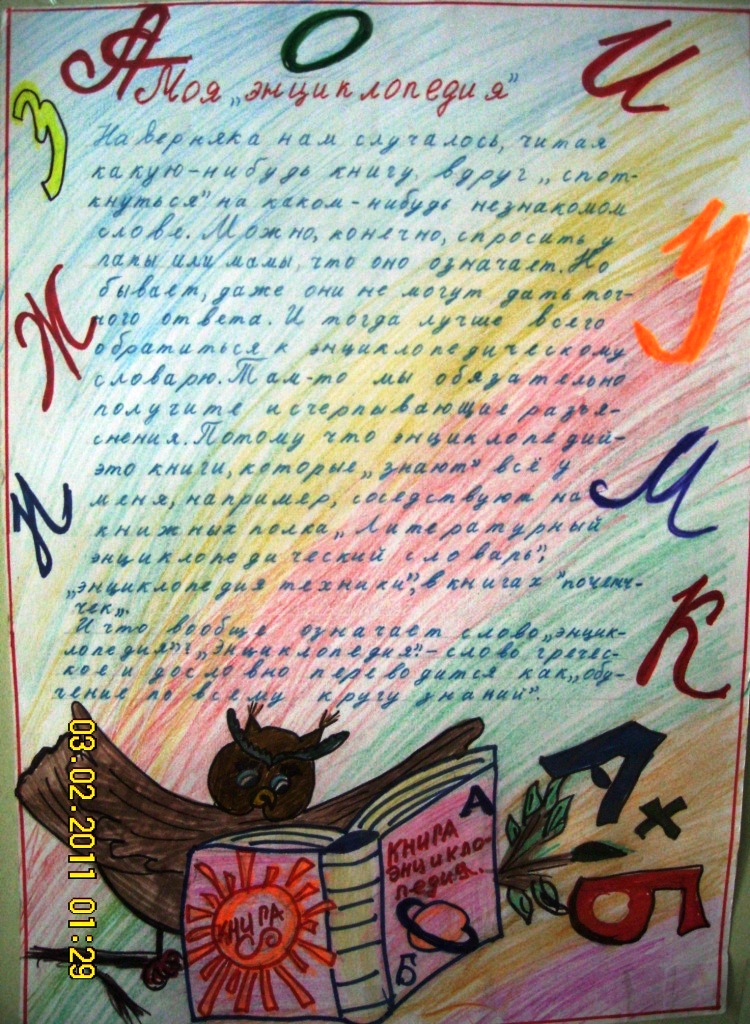 А О И
З
Моя „энциклопедия"
Наверняка нам случалось, читая
какую-нибудь книгу, вдруг „спот-
кнуться" на каком-нибудь незнакомом
слове. Можно, конечно, спросить у
папы или мамы, что оно означает. Но
бывает, даже они не могут дать точ-
ного ответа. И тогда лучше всего
обратиться к энциклопедическому
словарю. Там-то мы обязательно
получите исчерпывающие разъя-
снения. Потому что энциклопедий-
это книги, которые „знают" всё у
меня, например, соседствуют на
книжных полка „Литературный
энциклопедический словарь",
„энциклопедия техники", в книгах "почемч-
чек„.
И что вообще означает слово „энцик-
лопедия"? „Энциклопедия"- слово гречес-
кое и дословно переводится как „обу-
чение по всему кругу знаний".
У
Ж
М
И
К
А
КНИГА
ЭНЦИКЛО-
ПЕДИЯ..
КНИГА
Б
Л
х
Б
03.02.2011 01:29